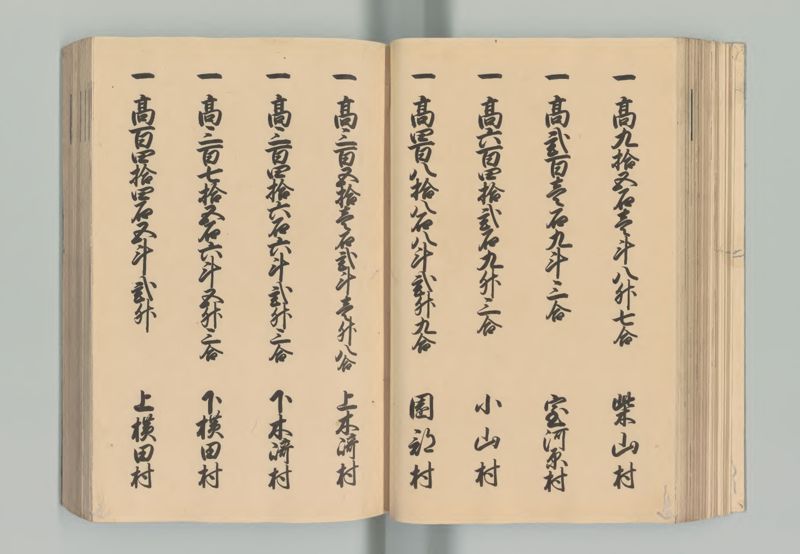 一 高九拾五石壱斗八升七合 柴山村
一 高弐百壱石九斗三合 室河原村
一 高六百四拾弐石九升三合 小山村
一 高四百八拾八石八斗弐升九合 園部村
一 高三百五拾壱石弐斗壱升八合 上木崎村
一 高三百四拾六石六斗弐升三合 下木崎村
一 高三百七拾五石六斗五升三合 下横田村
一 高百四拾四石五斗弐升 上横田村